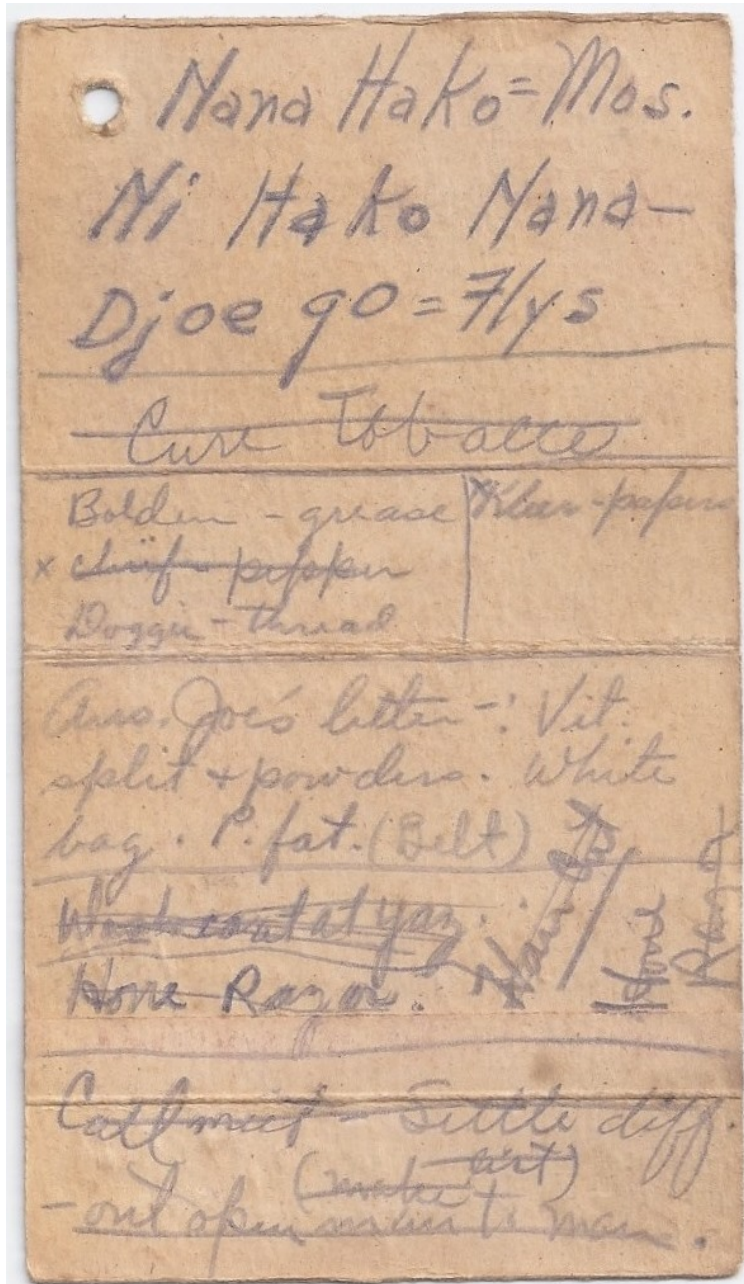 Nana Hako = Mos.
Ni Hako Nana –
Djoe go = Flys
Cure Tobacco
Bolden - grease
x chief - pepper
Doggie - thread
Kleer - papers
Ans. Joe's letter -: Vit.
split + powders. White
bag. P. fat. (Belt)
Wash coat at yaz.
Hone Razor.
Hair
Hone
Razor
Call meet - Settle diff.
(make list)
- out open man to man.